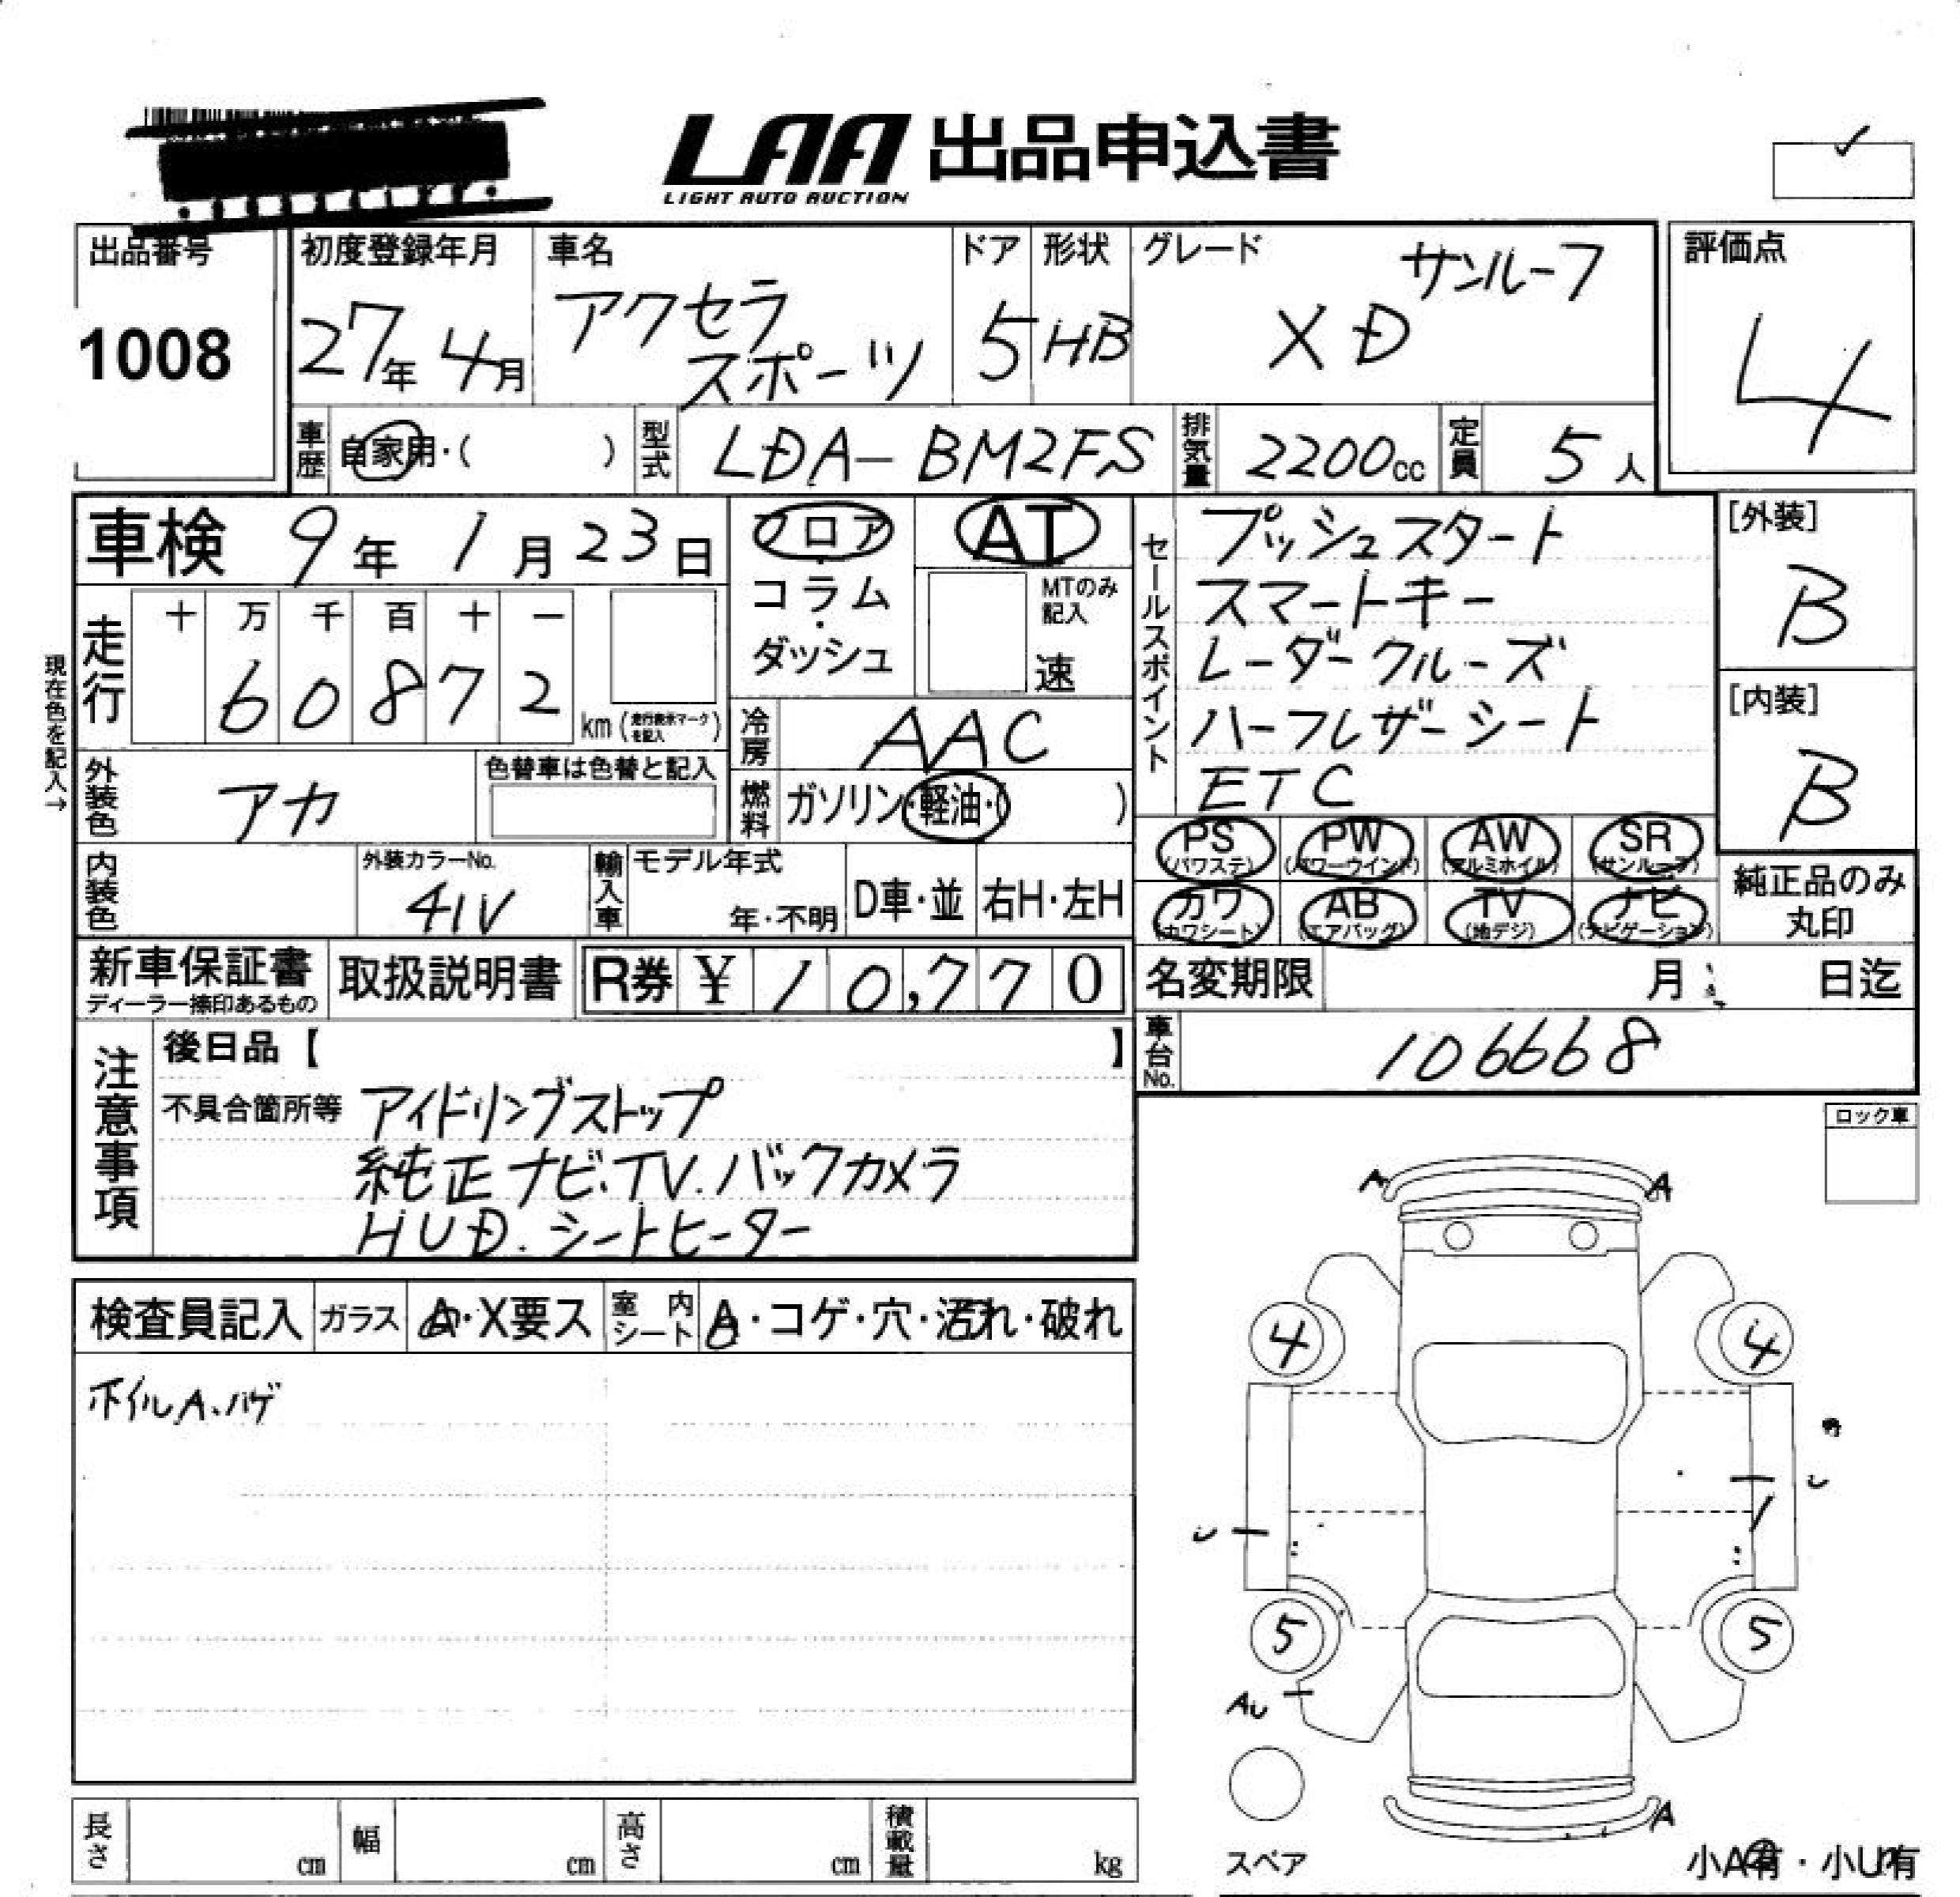 LAA 出品申込書
LIGHT AUTO AUCTION
出品番号
1008
初度登録年月
27年 4月
車名
アクセラ
スポーツ
ドア
5
形状
HB
グレード
サンルーフ
XD
評価点
4
車歴
自家用・( )
型式
LDA-BM2FS
排気量
2200cc
定員
5人
車検 9年 1月23日
フロア
・
コラム
・
ダッシュ
AT
MTのみ
記入
速
セールスポイント
プッシュスタート
スマートキー
レーダークルーズ
ハーフレザーシート
ETC
[外装]
B
[内装]
B
現在色を記入→
走行
十 万 千 百 十 一
6 0 8 7 2
km (走行表示マークを記入)
冷房
AAC
外装色
アカ
色替車は色替と記入
燃料
ガソリン・軽油・( )
内装色
外装カラーNo.
41V
輸入車
モデル年式
年・不明
D車・並
右H・左H
PS (パワステ)
PW (パワーウインド)
AW (アルミホイル)
SR (サンルーフ)
カワ (カワシート)
AB (エアバッグ)
TV (地デジ)
ナビ (ナビゲーション)
純正品のみ
丸印
新車保証書
ディーラー捺印あるもの
取扱説明書
R券 ¥ 10,770
名変期限 月 日迄
車台No.
106668
注意事項
後日品【 】
不具合箇所等 アイドリングストップ
純正ナビ.TV.バックカメラ
HUD.シートヒーター
ロック車
検査員記入
ガラス
A・X要ス
室内シート
A・コゲ・穴・汚れ・破れ
ホイルA、ハゲ
A A
4 4
U
U
5 5
AU
A
スペア
小A有・小U有
長さ cm
幅 cm
高さ cm
積載量 kg